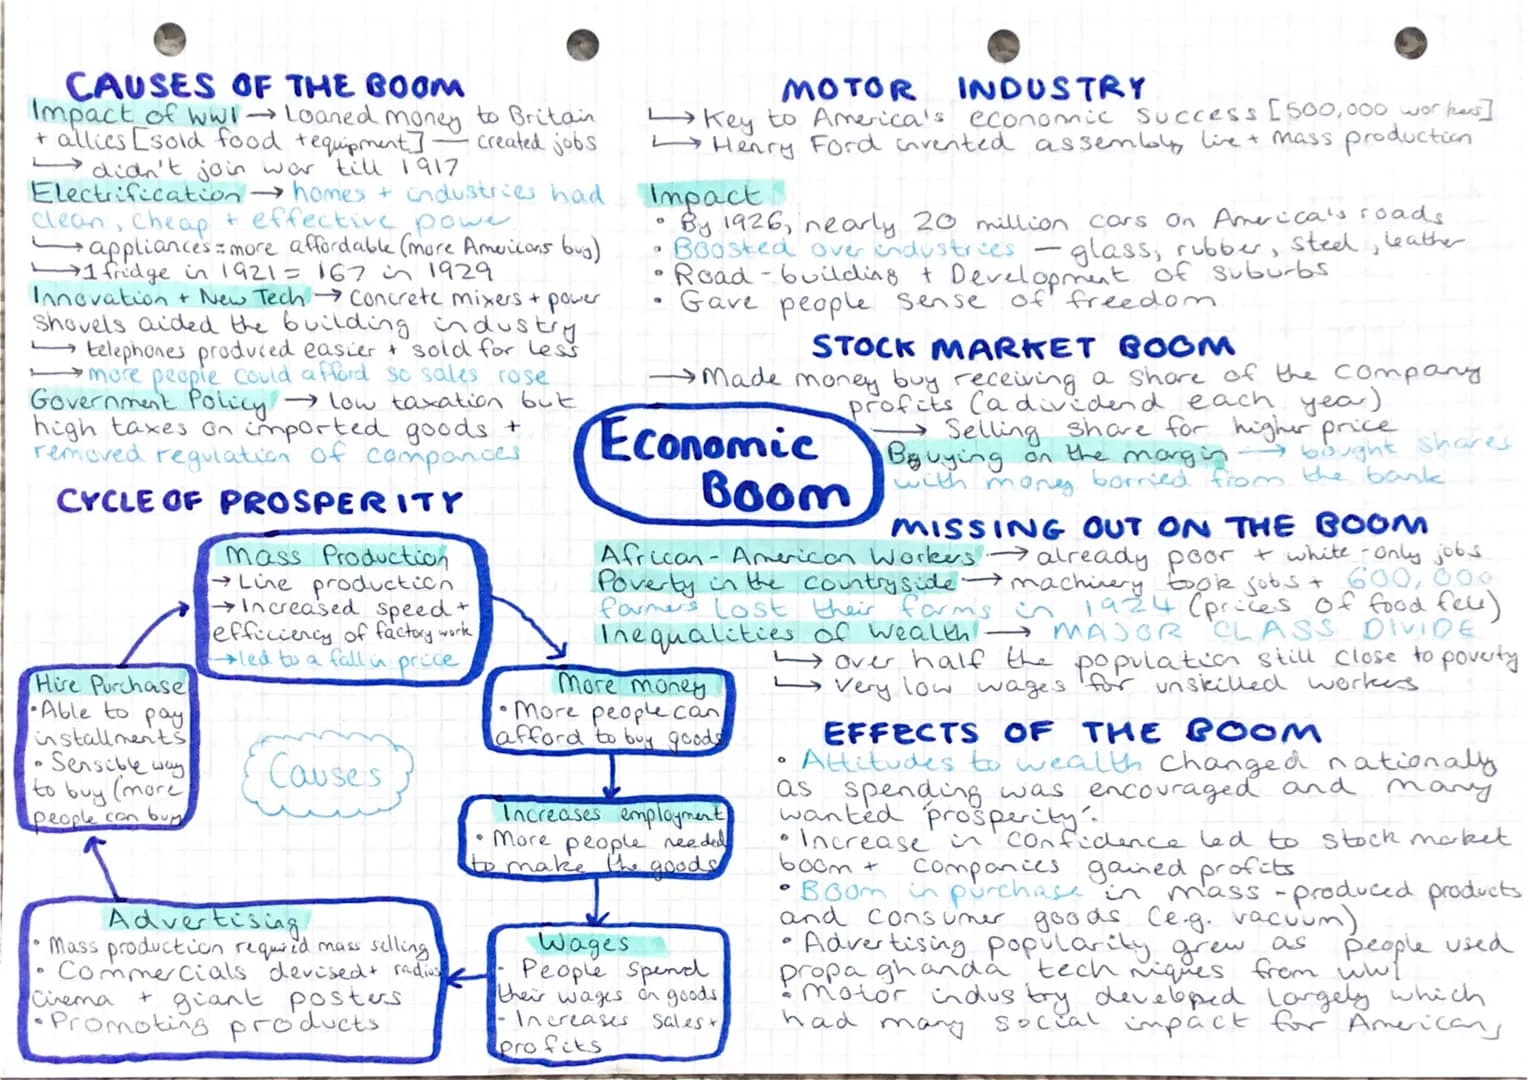 CAUSES OF THE BOOM
Impact of WWI → Loaned money to Britain
+ allies [sold food + equipment] — created jobs
↳ didn't join war till 1917
Electrification → homes + industries had
clean, cheap + effective power
↳ appliances = more affordable (more Americans buy)
↳ 1 fridge in 1921 = 167 in 1929
Innovation + New Tech → concrete mixers + power
shovels aided the building industry
↳ telephones produced easier + sold for less
↳ more people could afford so sales rose
Government Policy → low taxation but
high taxes on imported goods +
removed regulation of companies
CYCLE OF PROSPERITY
Mass Production
→ Line production
→ Increased speed +
efficiency of factory work
→ led to a fall in price
More money
• More people can
afford to buy goods
Increases employment
• More people needed
to make the goods
Wages
- People spend
their wages on goods
- Increases sales +
profits
Advertising
• Mass production required mass selling
• Commercials devised + radios
cinema + giant posters
• Promoting products
Hire Purchase
• Able to pay
installments
• Sensible way
to buy (more
people can buy
Causes
Economic
Boom
MOTOR INDUSTRY
↳ Key to America's economic success [500,000 workers]
↳ Henry Ford invented assembly line + mass production
Impact
• By 1926, nearly 20 million cars on America's roads
• Boosted over industries — glass, rubber, steel, leather
• Road-building + Development of suburbs
• Gave people sense of freedom
STOCK MARKET BOOM
→ Made money buy receiving a share of the company
profits (a dividend each year)
→ Selling share for higher price
Buying on the margin → bought shares
with money borried from the bank
MISSING OUT ON THE BOOM
African-American Workers → already poor + white-only jobs
Poverty in the countryside → machinery took jobs + 600,000
farmers lost their farms in 1924 (prices of food fell)
Inequalities of wealth → MAJOR CLASS DIVIDE
↳ over half the population still close to poverty
↳ Very low wages for unskilled workers
EFFECTS OF THE BOOM
• Attitudes to wealth changed nationally
as spending was encouraged and many
wanted 'prosperity'.
• Increase in confidence led to stock market
boom + companies gained profits
• Boom in purchase in mass-produced products
and consumer goods (e.g. vacuum)
• Advertising popularity grew as people used
propaghanda techniques from WWI
• Motor industry developed largely which
had many social impact for Americans